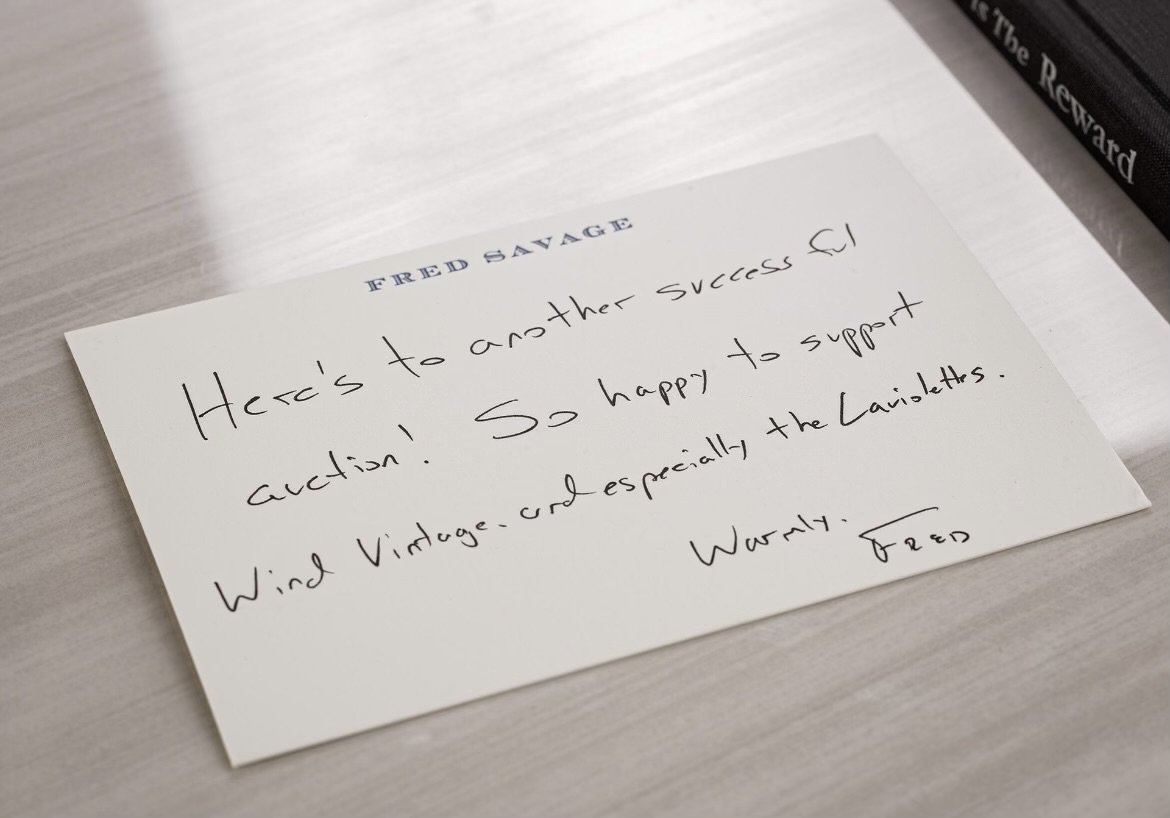 is The Reward
FRED SAVAGE
Here's to another successful
auction! So happy to support
Wind Vintage. and especially the Laviolettes.
Warmly. FRED